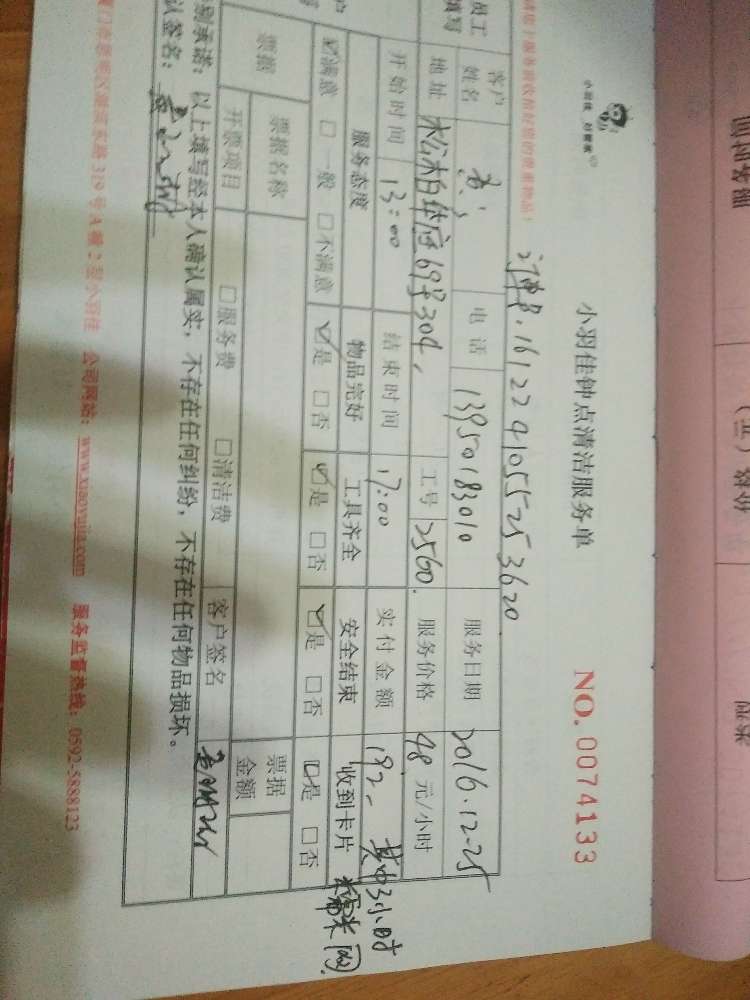 小羽佳 好管家
小羽佳钟点清洁服务单
NO. 0074133
订单号.16122910552536 20
客户
姓名
电话 13950183010
服务日期 2016.12.25
地址 松柏华庭69号304,
工号 2560.
服务价格 48 元/小时
开始时间 13:00
结束时间 17:00
实付金额 192,
其中3小时
服务态度
物品完好
工具齐全
安全结束
收到卡片
☑满意 □一般 □不满意
☑是 □否
☑是 □否
☑是 □否
☑是 □否
票据
票据名称
票据
金额
开票项目
□服务费 □清洁费
客户签名
承诺:以上填写经本人确认属实,不存在任何纠纷,不存在任何物品损坏。
认签名:
319号A幢2型小羽佳 公司网站:www.xiaoyujia.com 服务监督热线:0592-5888123
员工
填写